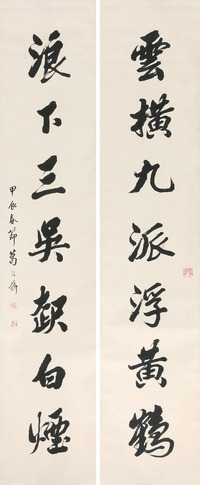 雲橫九派浮黃鶴
浪下三吳起白煙
甲辰春節萬公